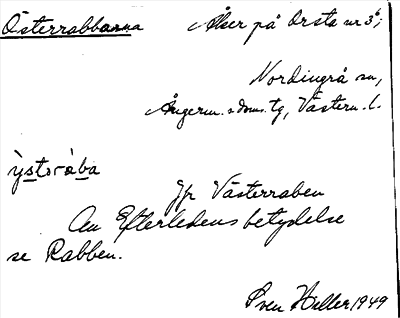 Österrabbarna Åker på Orsta nr 3;
Nordingrå sn,
Ångerm. s doms. tg, Västern. l.
ỳstɔràba
Jfr Västerraben
Om Efterledens betydelse
se Rabben.
Sven Heller 1949